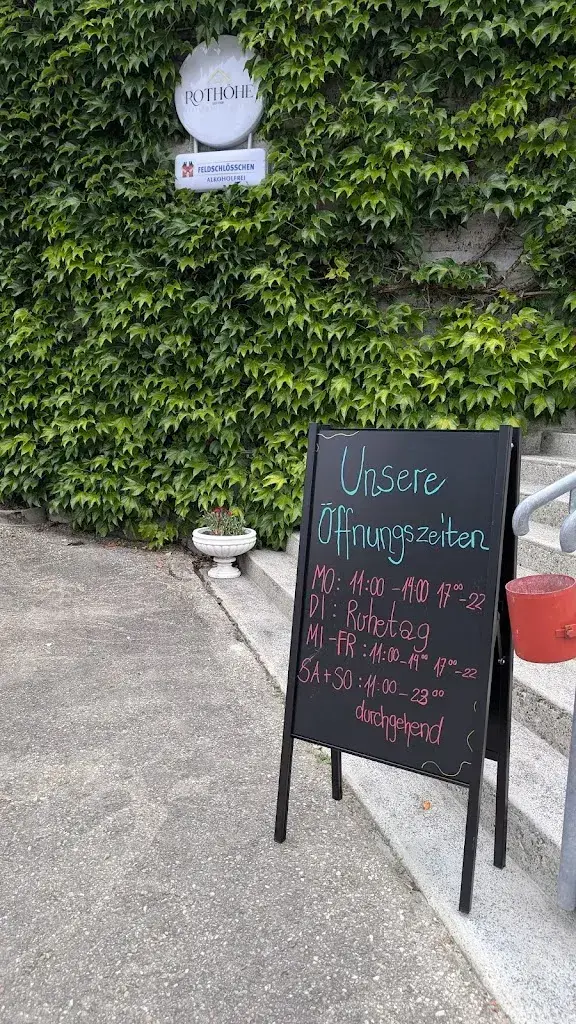 ROTHÖHE
FELDSCHLÖSSCHEN
ALKOHOLFREI
Unsere
Öffnungszeiten
MO: 11:00 - 14:00 17⁰⁰-22
DI: Ruhetag
MI-FR: 11:00-14⁰⁰ 17⁰⁰-22
SA+SO: 11:00-23⁰⁰
durchgehend